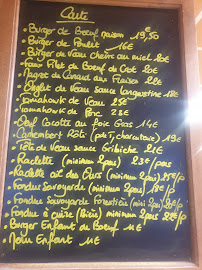 Carte
- Burger de Boeuf maison 19,50
- Burger de Poulet 16€
- Burger de Veau Chèvre au miel 20€
- Faux Filet de Boeuf de l'est 20€
- Magret de Canard aux Fraises 22€
- Onglet de Veau sauce langoustine 18€
- Tomahawk de Veau 25€
- Tomahawk de Porc 23€
- Oeuf Cocotte au foie Gras 14€
- Camembert Rôti (pdt, charcuterie) 19€
- Tête de Veau sauce Gribiche 21€
- Raclette (minimum 2pers) 23€/pers
- Raclette ail des Ours (minimum 2pers) 25€/p
- Fondue Savoyarde (minimum 2pers) 18€/p
- Fondue Savoyarde Forestière (mini 2pers)
- Fondue à cuire (Bière) minimum 2pers
- Burger Enfant au Boeuf 11€
- Menu Enfant 11€